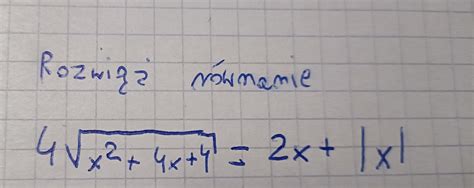 Rozwiąż równanie
4√(x²+4x+4) = 2x + |x|